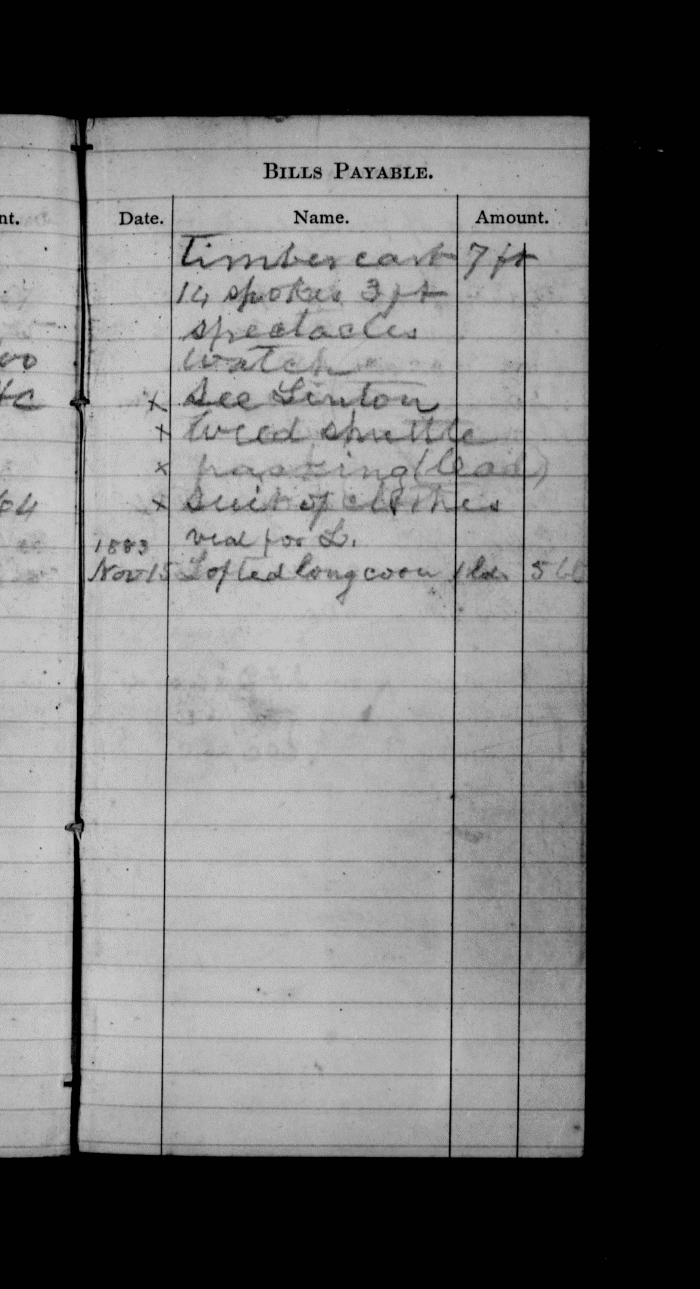 nt.
BILLS PAYABLE.
Date. Name. Amount.
Timber cart 7 ft
14 spokes 3 ft
spectacles
00 watch
x See Linton
x Weed shuttle
x packing (lead)
64 x Suit of clothes
1883 vial for L.
Nov 15 Lofted long corn 1 ld 560